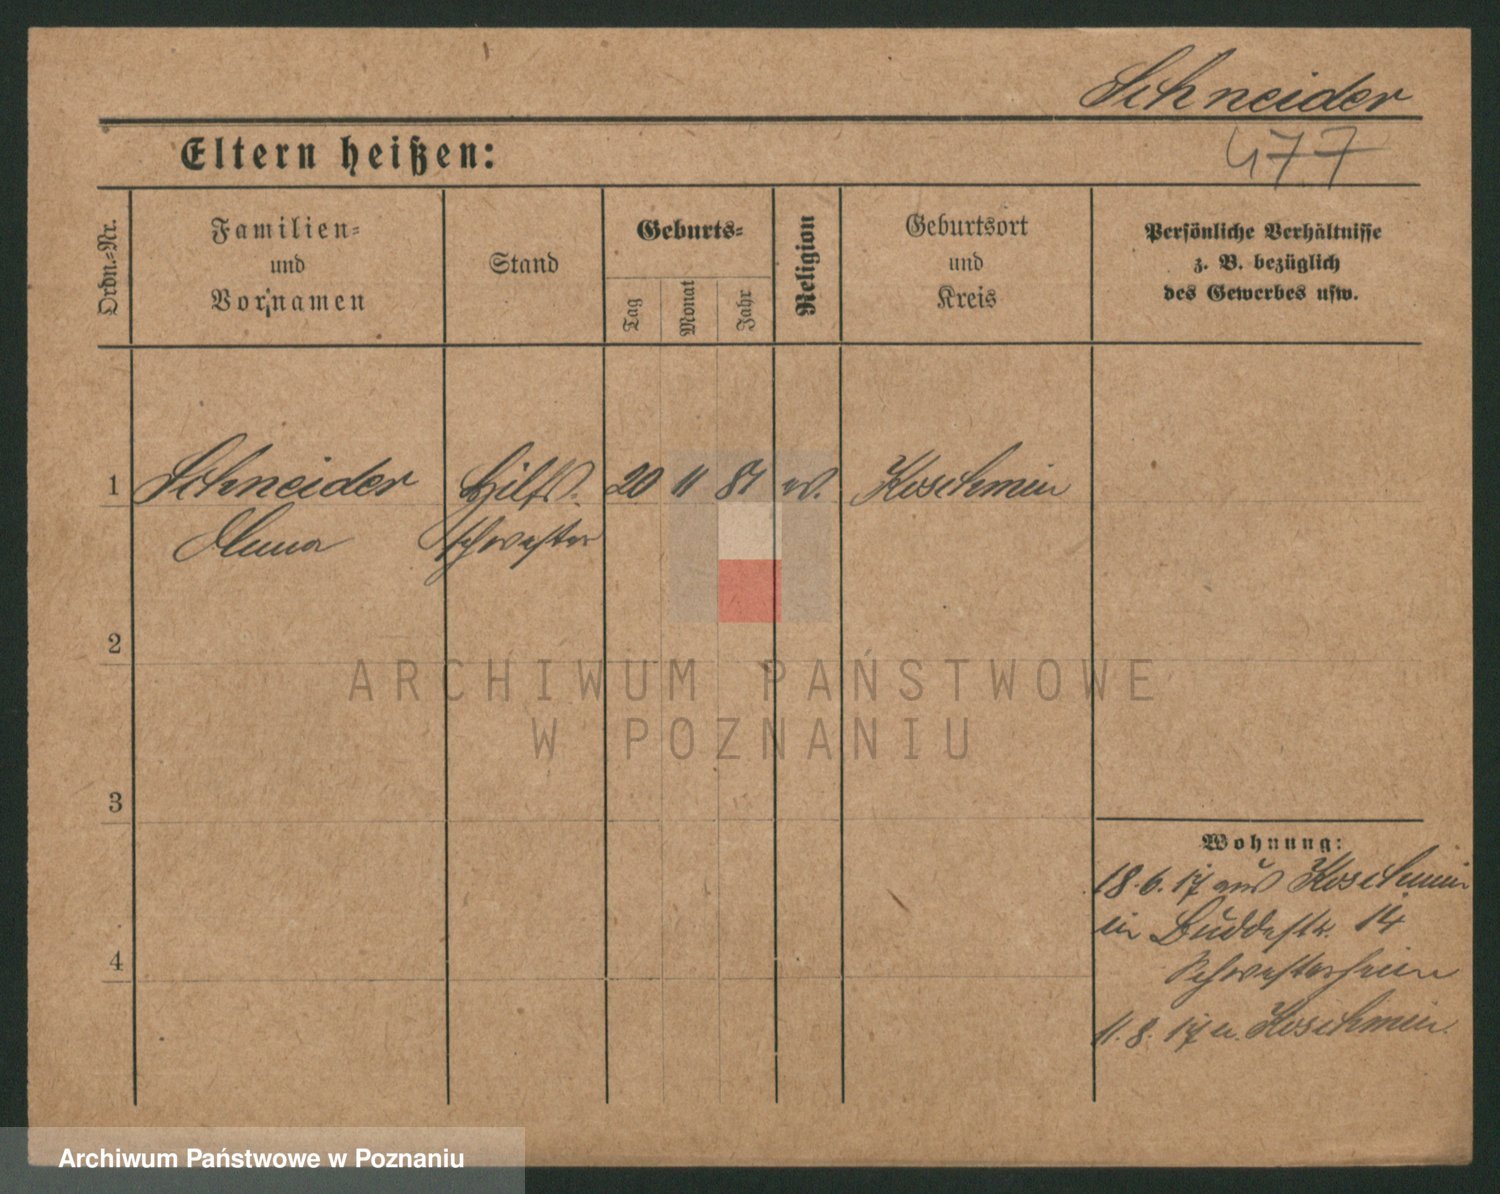 Schneider
477
Eltern heißen:
Ordn.-Nr.
Familien-
und
Vornamen
Stand
Geburts-
Tag
Monat
Jahr
Religion
Geburtsort
und
Kreis
Persönliche Verhältnisse
z. B. bezüglich
des Gewerbes usw.
1 Schneider Hilfs. 20 11 81 ev. Koschmin
schwester
2
3
4
Wohnung:
18.6.17 aus Koschmin
in Buddestr. 14
Schwesterheim
11.8.17 n. Koschmin.
ARCHIWUM PAŃSTWOWE
W POZNANIU
Archiwum Państwowe w Poznaniu